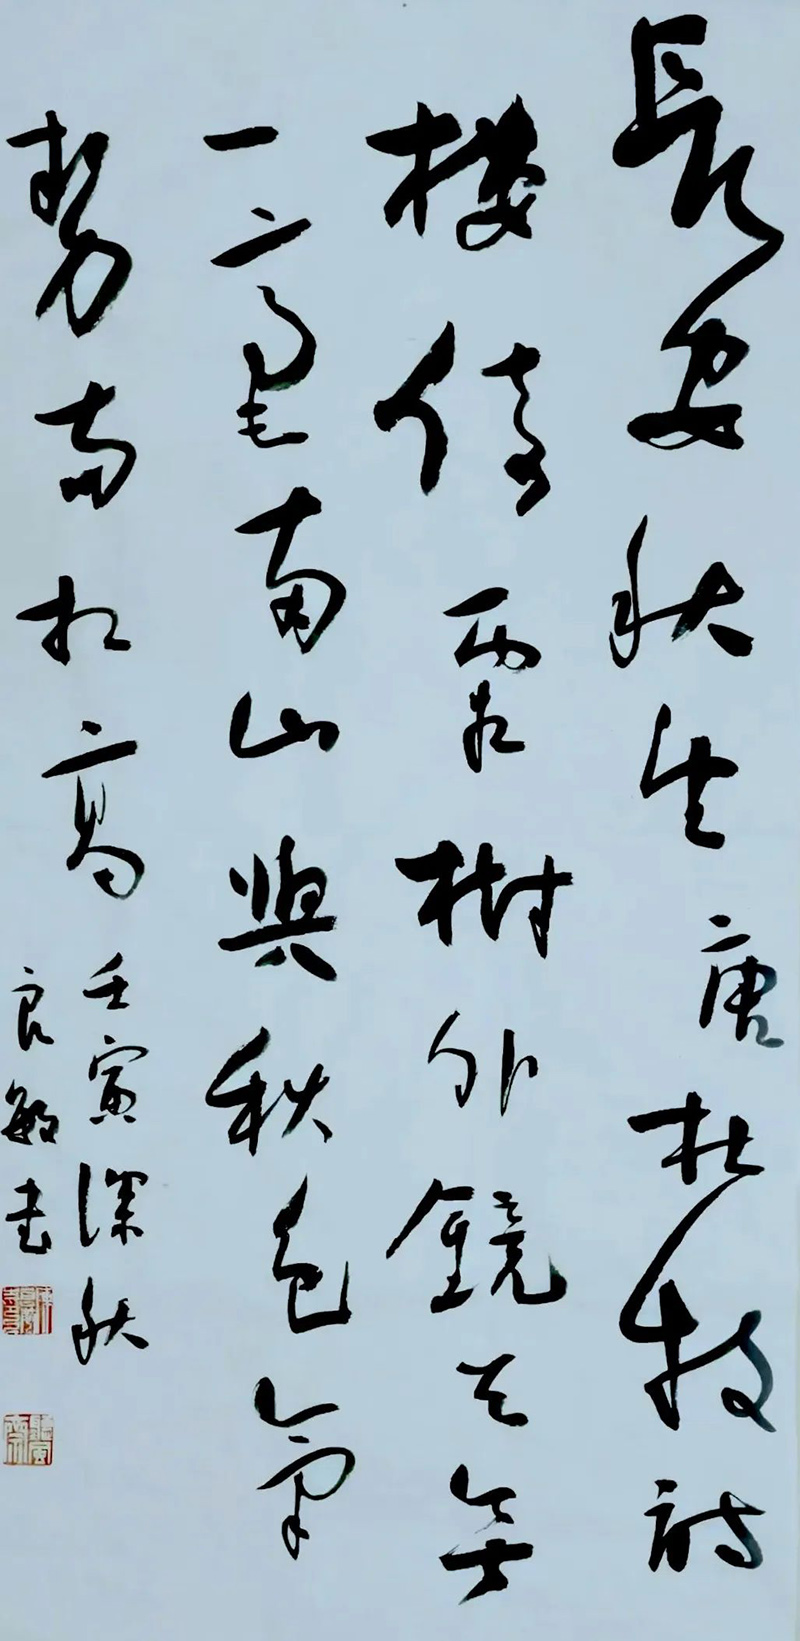 長安秋望唐杜牧詩
樓倚霜樹外鏡天無
一毫南山與秋色氣
勢兩相高
壬寅深秋
良敏書
聽風齋